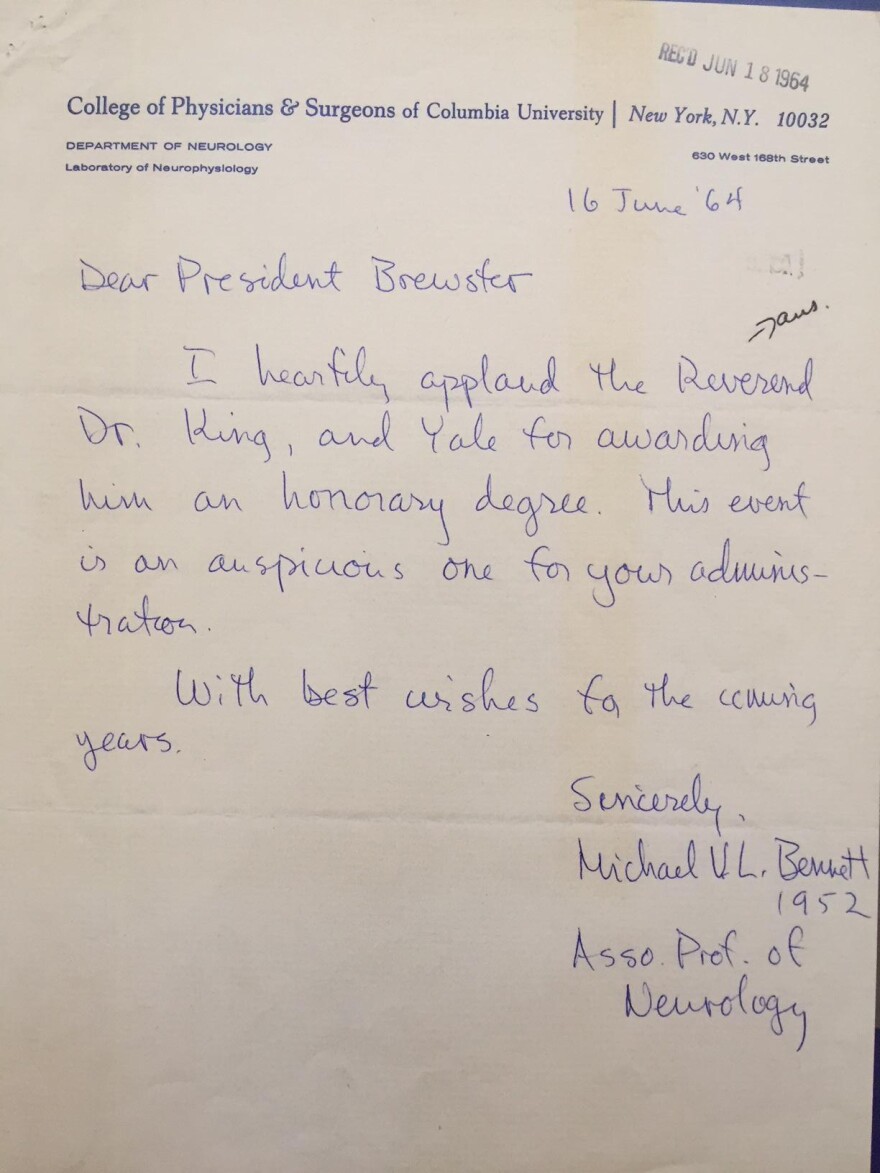 REC'D JUN 18 1964
College of Physicians & Surgeons of Columbia University | New York, N.Y. 10032
DEPARTMENT OF NEUROLOGY
630 West 168th Street
Laboratory of Neurophysiology
16 June '64
Dear President Brewster
ans.
I heartily applaud the Reverend
Dr. King, and Yale for awarding
him an honorary degree. This event
is an auspicious one for your adminis-
tration.
With best wishes for the coming
years.
Sincerely,
Michael V. L. Bennett
1952
Asso. Prof. of
Neurology